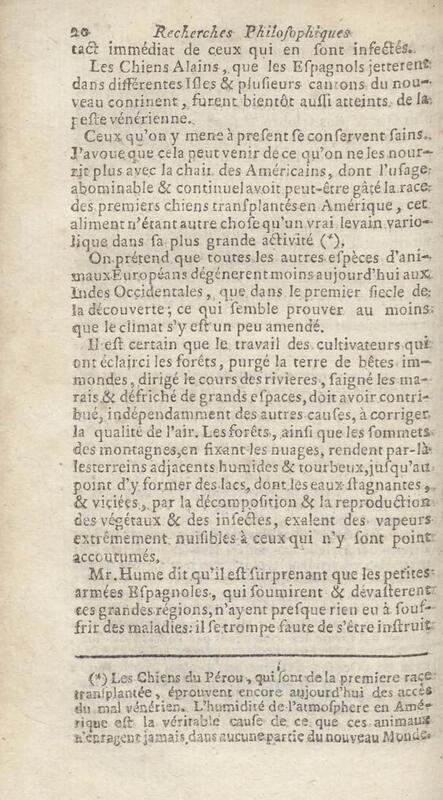 20 Recherches Philoſophiques
tact immédiat de ceux qui en ſont infectés.
Les Chiens Alains, que les Eſpagnols jetterent
dans différentes Iſles & pluſieurs cantons du nou-
veau continent, furent bientôt auſſi atteints de la
peſte vénérienne.
Ceux qu'on y mene à preſent ſe conſervent ſains.
J'avoue que cela peut venir de ce qu'on ne les nour-
rit plus avec la chair des Américains, dont l'uſage
abominable & continuel avoit peut-être gâté la race
des premiers chiens tranſplantés en Amérique, cet
aliment n'étant autre choſe qu'un vrai levain vario-
lique dans ſa plus grande activité (*).
On prétend que toutes les autres eſpèces d'ani-
maux Européans dégénerent moins aujourd'hui aux
Indes Occidentales, que dans le premier ſiecle de
la découverte; ce qui ſemble prouver au moins
que le climat s'y eſt un peu amendé.
Il eſt certain que le travail des cultivateurs qui
ont éclairci les forêts, purgé la terre de bêtes im-
mondes, dirigé le cours des rivieres, ſaigné les ma-
rais & défriché de grands eſpaces, doit avoir contri-
bué, indépendamment des autres cauſes, à corriger
la qualité de l'air. Les forêts, ainſi que les ſommets
des montagnes, en fixant les nuages, rendent par-là
les terreins adjacents humides & tourbeux, juſqu'au
point d'y former des lacs, dont les eaux ſtagnantes,
& viciées, par la décompoſition & la reproduction
des végétaux & des inſectes, exalent des vapeurs
extrêmement nuiſibles à ceux qui n'y ſont point
accoutumés.
Mr. Hume dit qu'il eſt ſurprenant que les petites
armées Eſpagnoles, qui ſoumirent & dévaſterent
ces grandes régions, n'ayent preſque rien eu à ſouf-
frir des maladies: il ſe trompe faute de s'être inſtruit
(*) Les Chiens du Pérou, qui ſont de la premiere race
tranſplantée, éprouvent encore aujourd'hui des accès
du mal vénérien. L'humidité de l'atmoſphere en Amé-
rique eſt la véritable cauſe de ce que ces animaux
n'enragent jamais dans aucune partie du nouveau Monde.